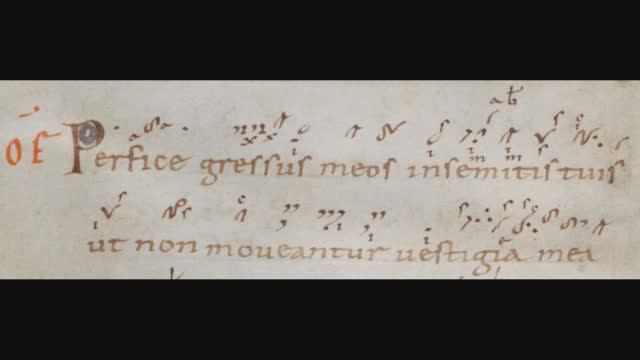 OF Perfice gressus meos insemitis tuis
ut non moveantur vestigia mea